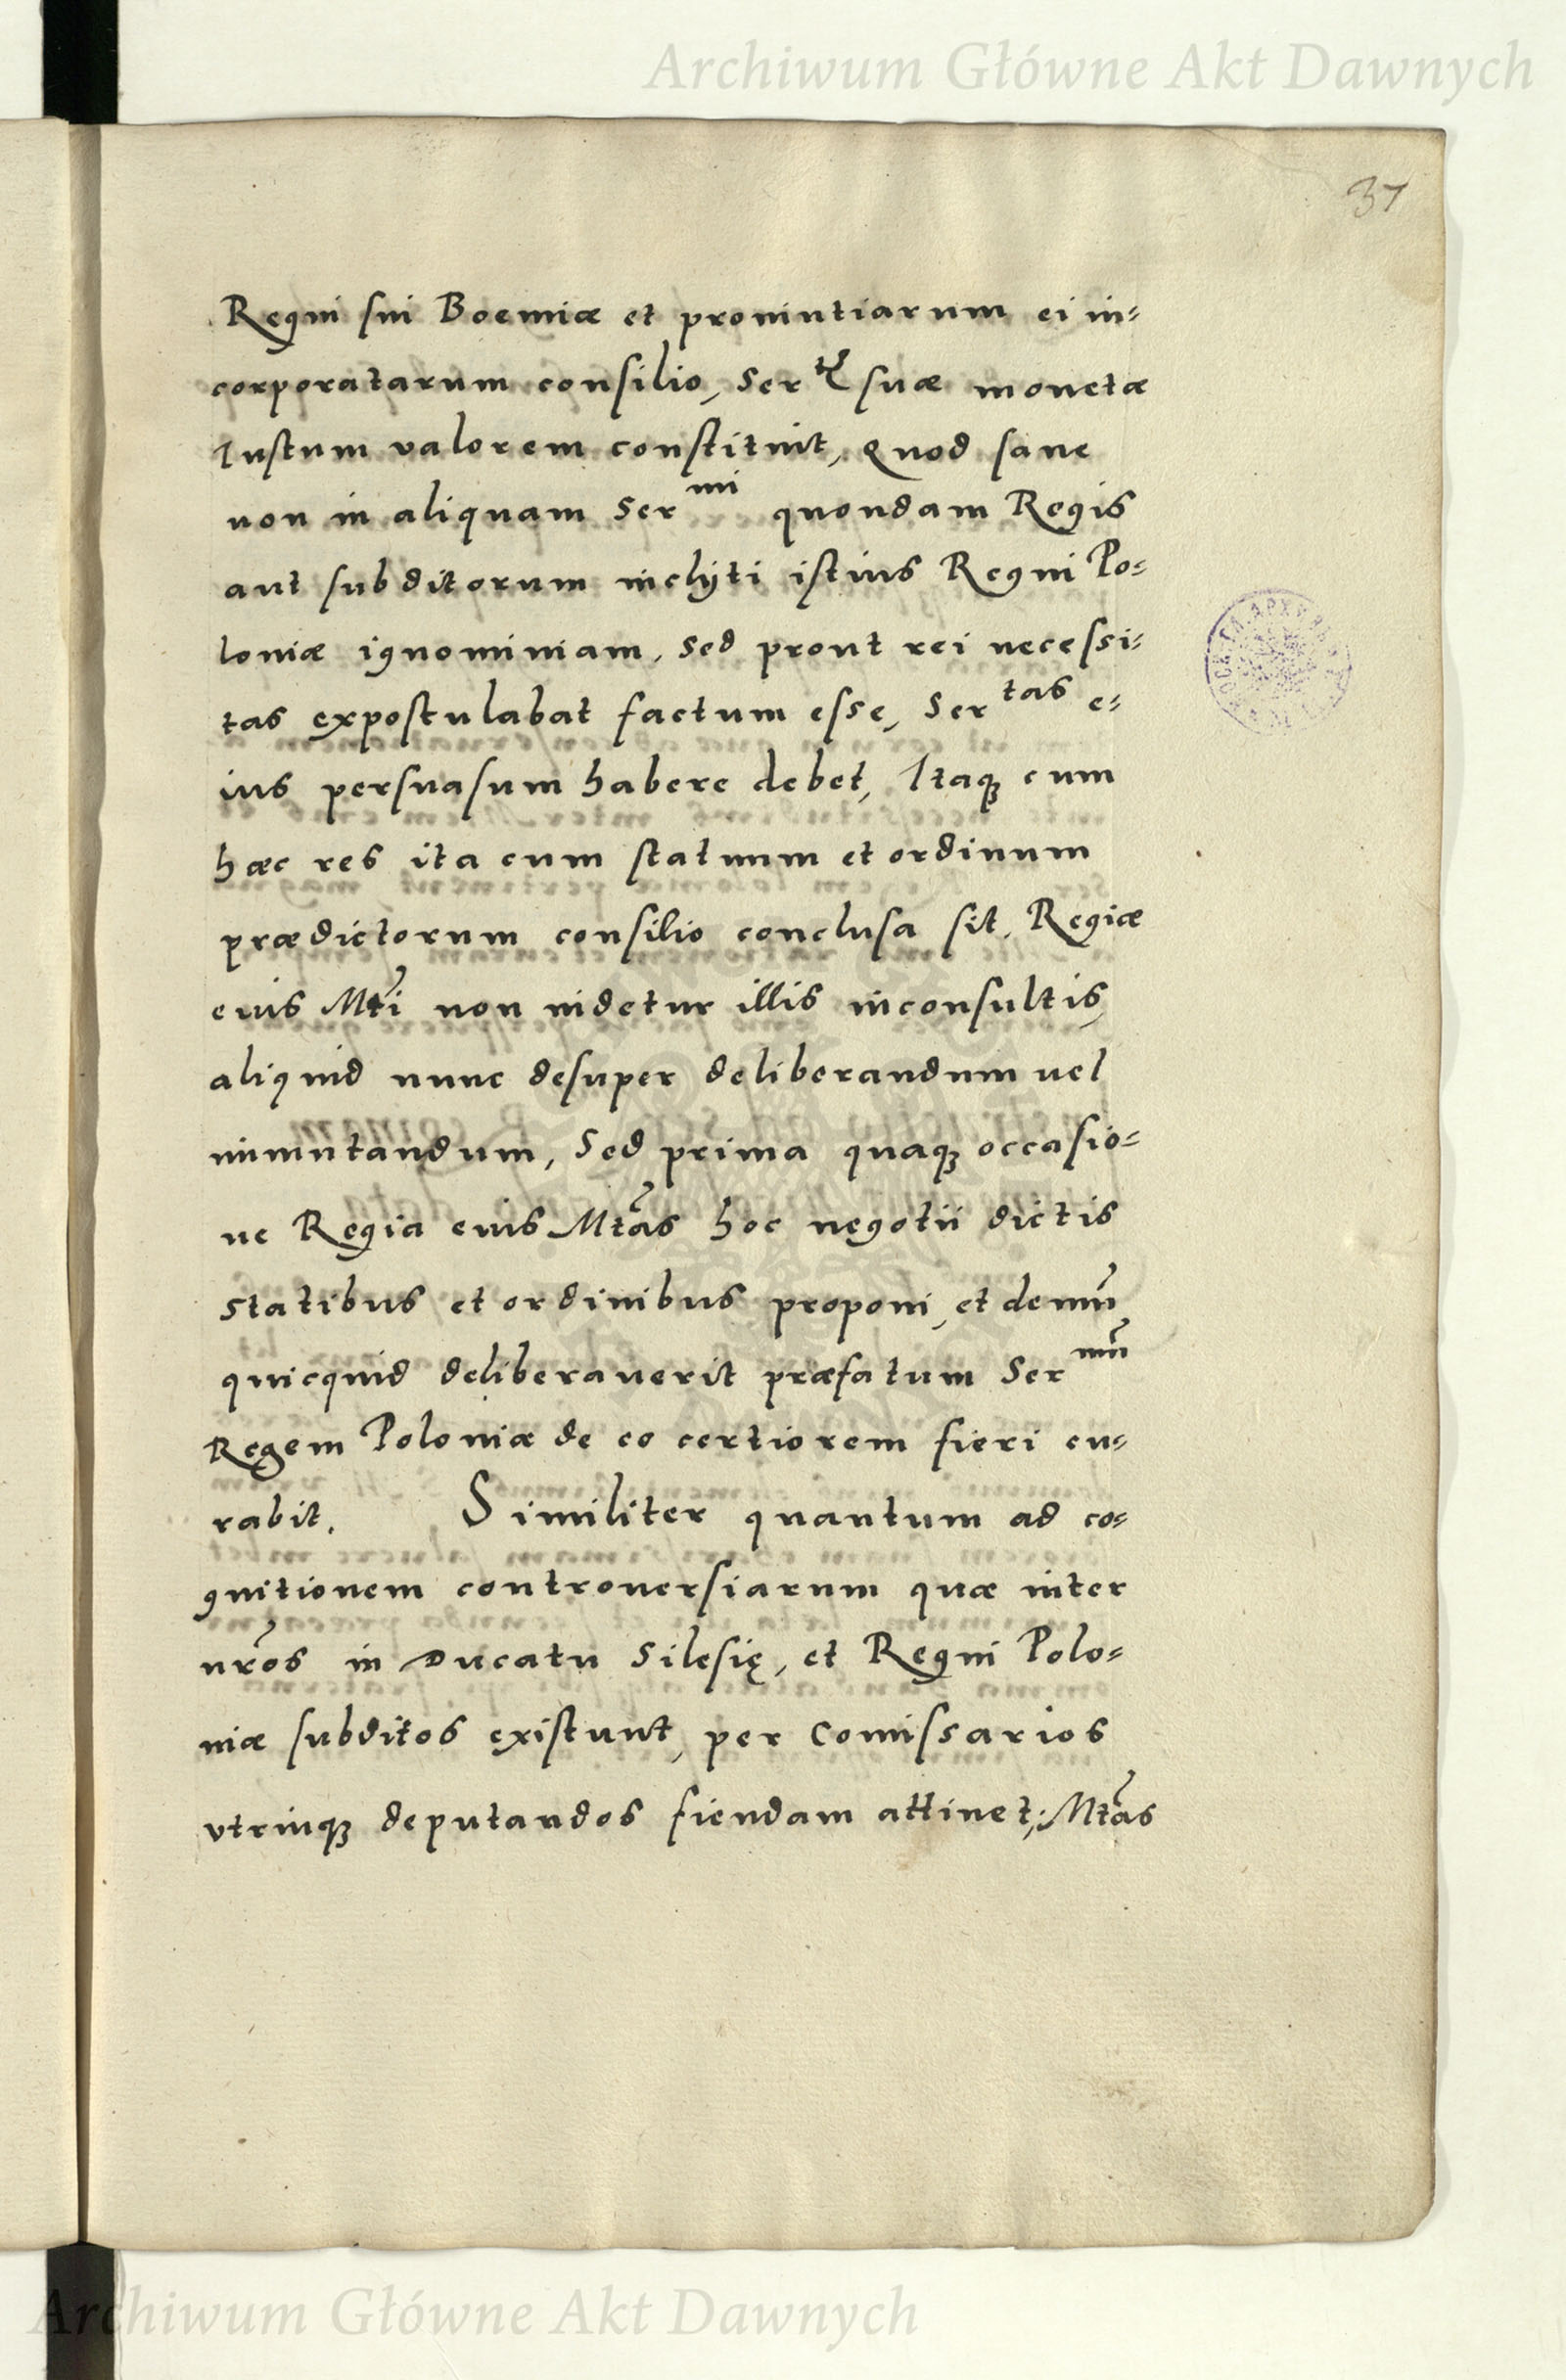 Archiwum Główne Akt Dawnych
37
Regni sui Boemiæ et prouintiarum ei in=
corporatarum consilio, Ser suæ monetæ
Iustum valorem constituit, Quod sane
non in aliquam Ser^mi quondam Regis
aut subditorum inclÿti istius Regni Po=
loniæ ignominiam, sed prout rei necessi=
tas expostulabat factum esse, Ser^tas e=
ius persuasum habere debet, Itaqꝫ cum
hæc res ita cum statuum et ordinum
prædictorum consilio conclusa sit, Regiæ
eius Mti non uidetur illis inconsultis,
aliquid nunc desuper deliberandum uel
inmutandum, Sed prima quaqꝫ occasio=
ne Regia eius Mtas hoc negotii dictis
statibus et ordinibus proponi, et demũ
quicquid deliberauerit præfatum Ser^mũ
Regem Poloniæ de eo certiorem fieri cu=
rabit. Similiter quantum ad co=
gnitionem controuersiarum quæ inter
nr̃os in Ducatu Silesię, et Regni Polo=
niæ subditos existunt, per Comissarios
vtrinqꝫ deputandos fiendam attinet; Mtas
Archiwum Główne Akt Dawnych